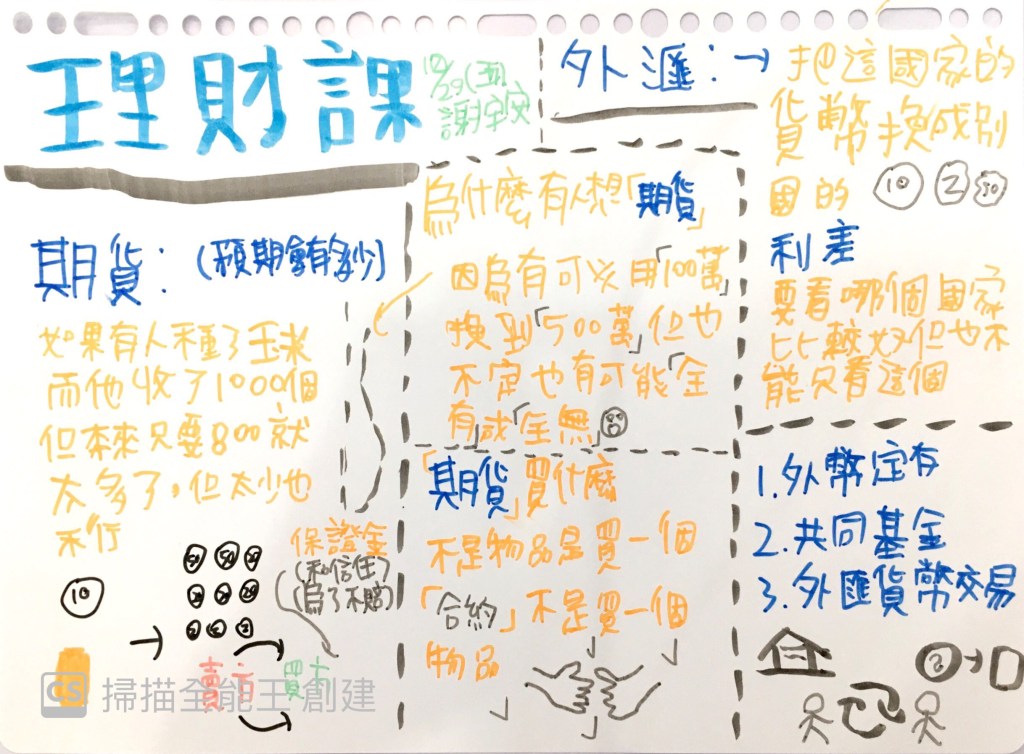 理財課
10/29(五)
謝宇安
期貨:(預期會有多少)
如果有人種了玉米
而他收了1000個
但本來只要800就
太多了,但太少也
不行
10
50
保證金
(和信任)
(為了不賠)
賣方 買方
為什麼有人想「期貨」
因為有可以用「100萬」
換到「500萬」但也
不定也有可能「全
有或「全無」
「期貨」買什麼
不是物品是買一個
「合約」不是買一個
物品
外匯:→把這國家的
貨幣換成別
國的
10 2 50
利差
要看哪個國家
比較好但也不
能只看這個
1.外幣定存
2.共同基金
3.外匯貨幣交易
CS 掃描全能王 創建